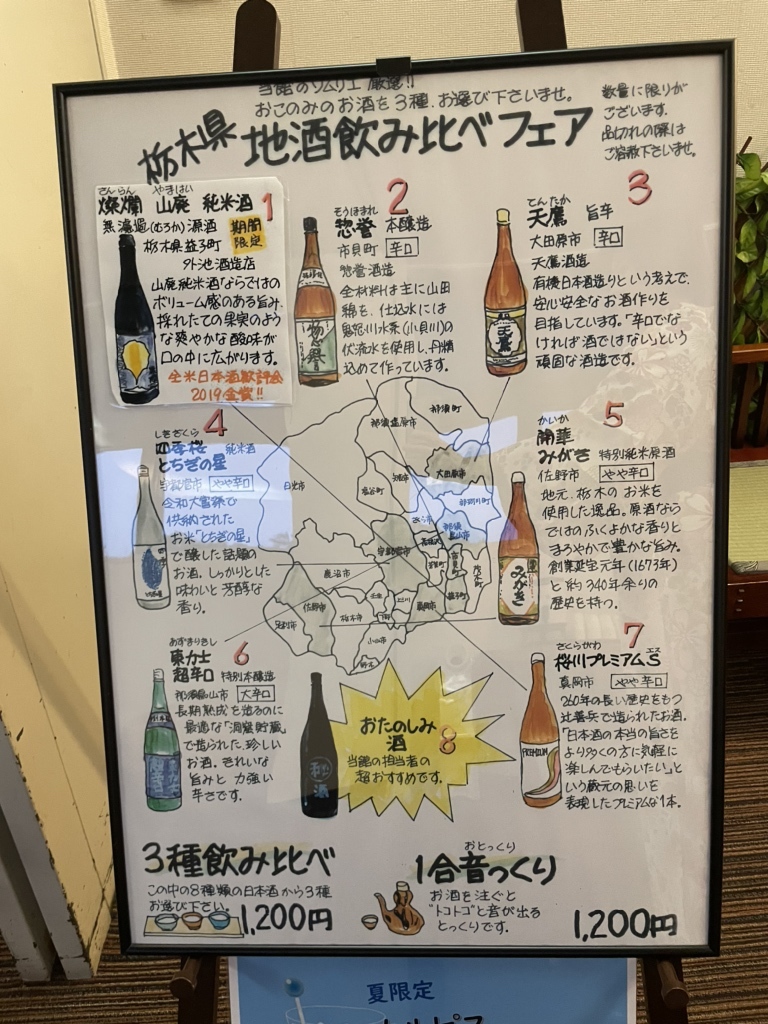 当館のソムリエ 厳選!!
おこのみのお酒を3種、お選び下さいませ。
栃木県 地酒飲み比べフェア
数量に限りが
ございます。
品切れの際は
ご容赦下さいませ。
さんらん やまはい
燦爛 山廃 純米酒 1
無濾過(むろか)原酒 期間限定
栃木県益子町
外池酒造店
山廃純米酒ならではの
ボリューム感のある旨み。
採れたての果実のよう
な爽やかな酸味が
口の中に広がります。
全米日本酒歓評会
2019金賞!!
2
そうほまれ
惣誉 本醸造
市貝町 辛口
惣誉酒造
全材料は主に山田
錦を、仕込水には
鬼怒川水系(小貝川)の
伏流水を使用し、丹精
込めて作っています。
惣誉
3
てんたか
天鷹 旨辛
大田原市 辛口
天鷹酒造
有機日本酒造りという考えで、
安心安全なお酒作りを
目指しています。「辛口でな
ければ酒ではない」という
頑固な酒造です。
天鷹
4
しきざくら
四季桜 純米酒
とちぎの星
宇都宮市 やや辛口
令和大嘗祭で
供納された
お米"とちぎの星"
で醸した話題の
お酒。しっかりとした
味わいと芳醇な
香り。
那須町
那須塩原市
大田原市
日光市
矢板市
塩谷町
那珂川町
さくら市
那須烏山市
宇都宮市
高根沢町
鹿沼市
市貝町
茂木町
芳賀町
益子町
真岡市
上三川
壬生
下野
佐野市
栃木市
足利市
小山市
野木
5
かいか
開華
みがき 特別純米原酒
佐野市 やや辛口
地元、栃木のお米を
使用した逸品。原酒なら
ではのふくよかな香りと
まろやかで豊かな旨み。
創業延宝元年(1673年)
と約340年余りの
歴史を持つ。
みがき
6
あずまりきし
東力士
超辛口 特別本醸造
那須烏山市 大辛口
長期熟成を造るのに
最適な「洞窟貯蔵」
で造られた珍しい
お酒。きれいな
旨みと力強い
辛さです。
おたのしみ
酒 8
当館の担当者の
超おすすめです。
秘
酒
7
さくらがわ エス
桜川プレミアムS
真岡市 やや辛口
260年の長い歴史をもつ
辻善兵で造られたお酒。
「日本酒の本当の旨さを
より多くの方に気軽に
楽しんでもらいたい」と
いう蔵元の思いを
表現したプレミアムな1本。
PREMIUM
3種飲み比べ
この中の8種類の日本酒から3種
お選び下さい。
1,200円
おとっくり
1合音っくり
お酒を注ぐと
"トコトコ"と音が出る
とっくりです。
1,200円
夏限定
カルピス